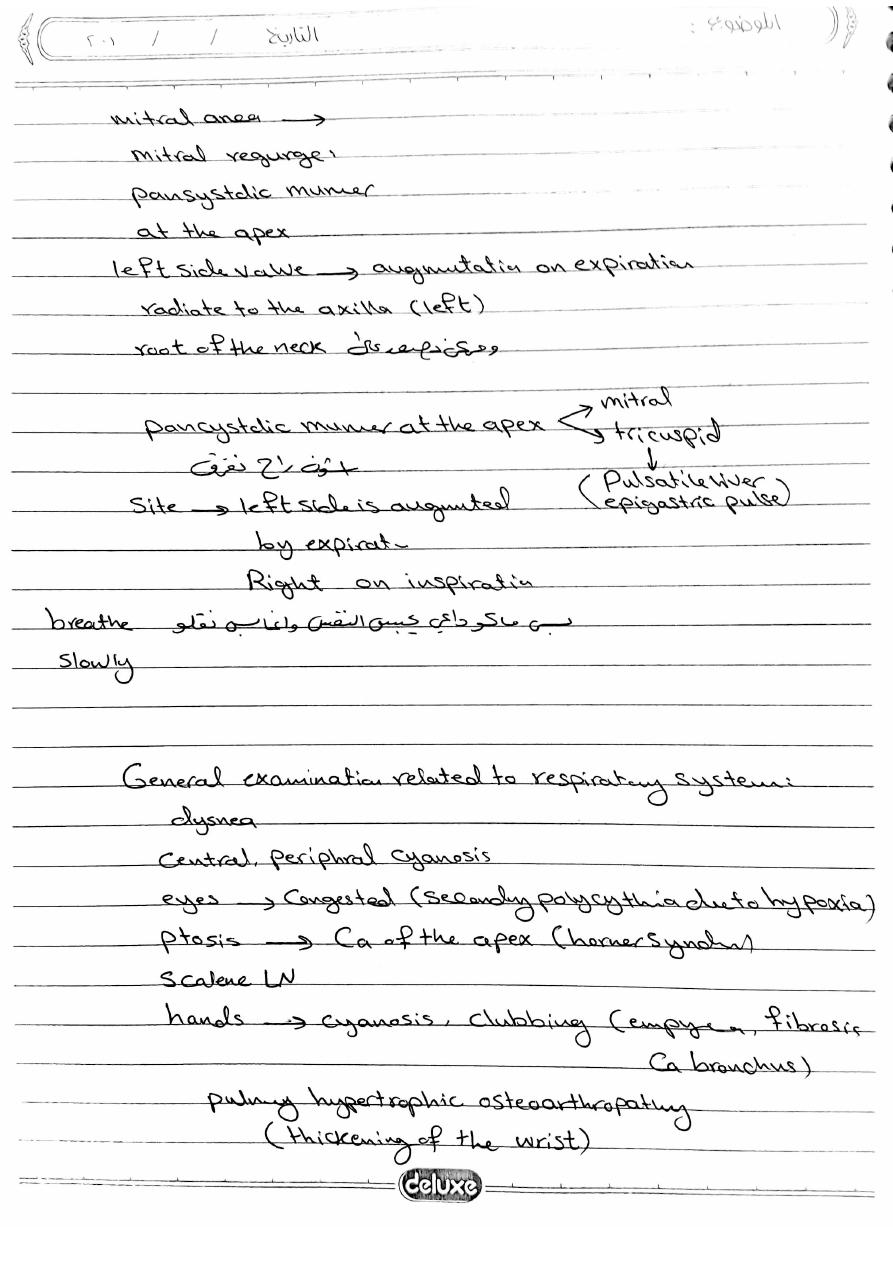 الموضوع :
التاريخ / / ٢٠١
mitral area →
mitral regurge:
pansystolic mumer
at the apex
left side valve → augmutatin on expiration
radiate to the axilla (left)
root of the neck
pancystolic mumer at the apex
mitral
tricuspid
شوف راح نفرق
(Pulsatile liver
epigastric pulse)
Site → left side is augmuted
by expirat~
Right on inspiratin
breathe بس ماكو داعي يحبس النفس وانما بس نقله
slowly
General examination related to respiratory system:
dysnea
Central, periphral cyanosis
eyes → Congested (Secondry polycythia due to hypoxia)
ptosis → Ca of the apex (horner Syndrm)
Scalene LN
hands → cyanosis, clubbing (empyea, fibrosis
Ca bronchus)
pulmry hypertrophic osteoarthropathy
(thickening of the wrist)
deluxe